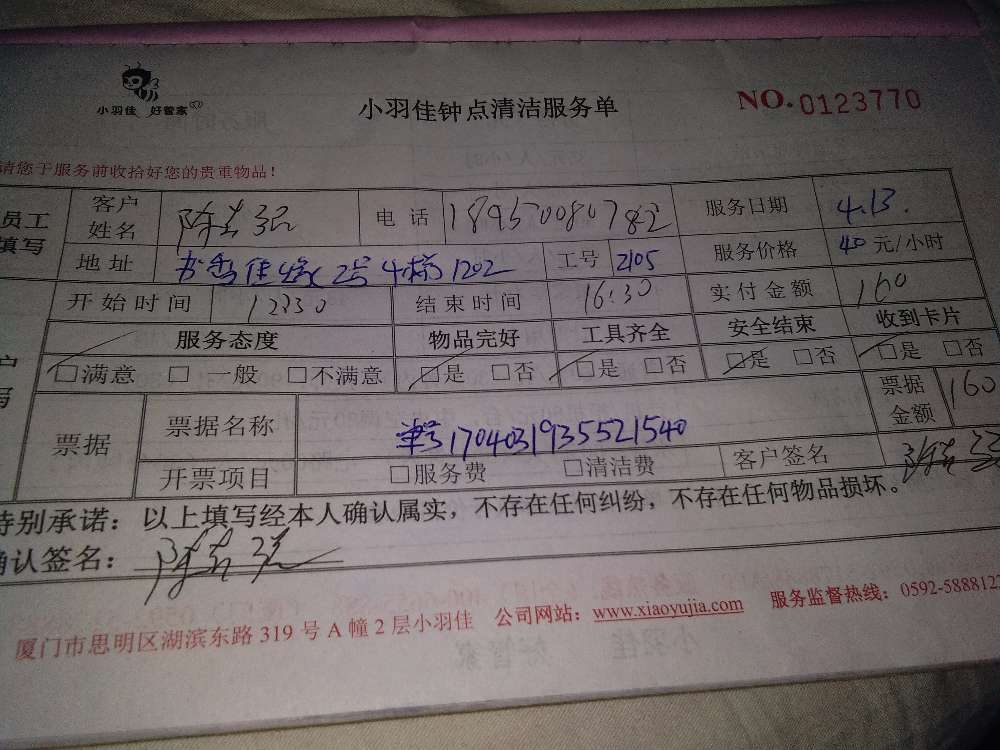 小羽佳 好管家
小羽佳钟点清洁服务单
NO.0123770
请您于服务前收拾好您的贵重物品！
员工填写
客户姓名 陈 电话 18950080782 服务日期 4.13.
地址 书香佳缘2号4梯1202 工号 2105 服务价格 40元/小时
开始时间 12330 结束时间 16:30 实付金额 160
服务态度 物品完好 工具齐全 安全结束 收到卡片
□满意 □一般 □不满意 □是 □否 □是 □否 □是 □否 □是 □否
票据 票据名称 单号1704031935521540 票据金额 160
开票项目 □服务费 □清洁费 客户签名 陈
特别承诺：以上填写经本人确认属实，不存在任何纠纷，不存在任何物品损坏。
确认签名：陈
厦门市思明区湖滨东路319号A幢2层小羽佳 公司网站：www.xiaoyujia.com 服务监督热线：0592-5888127